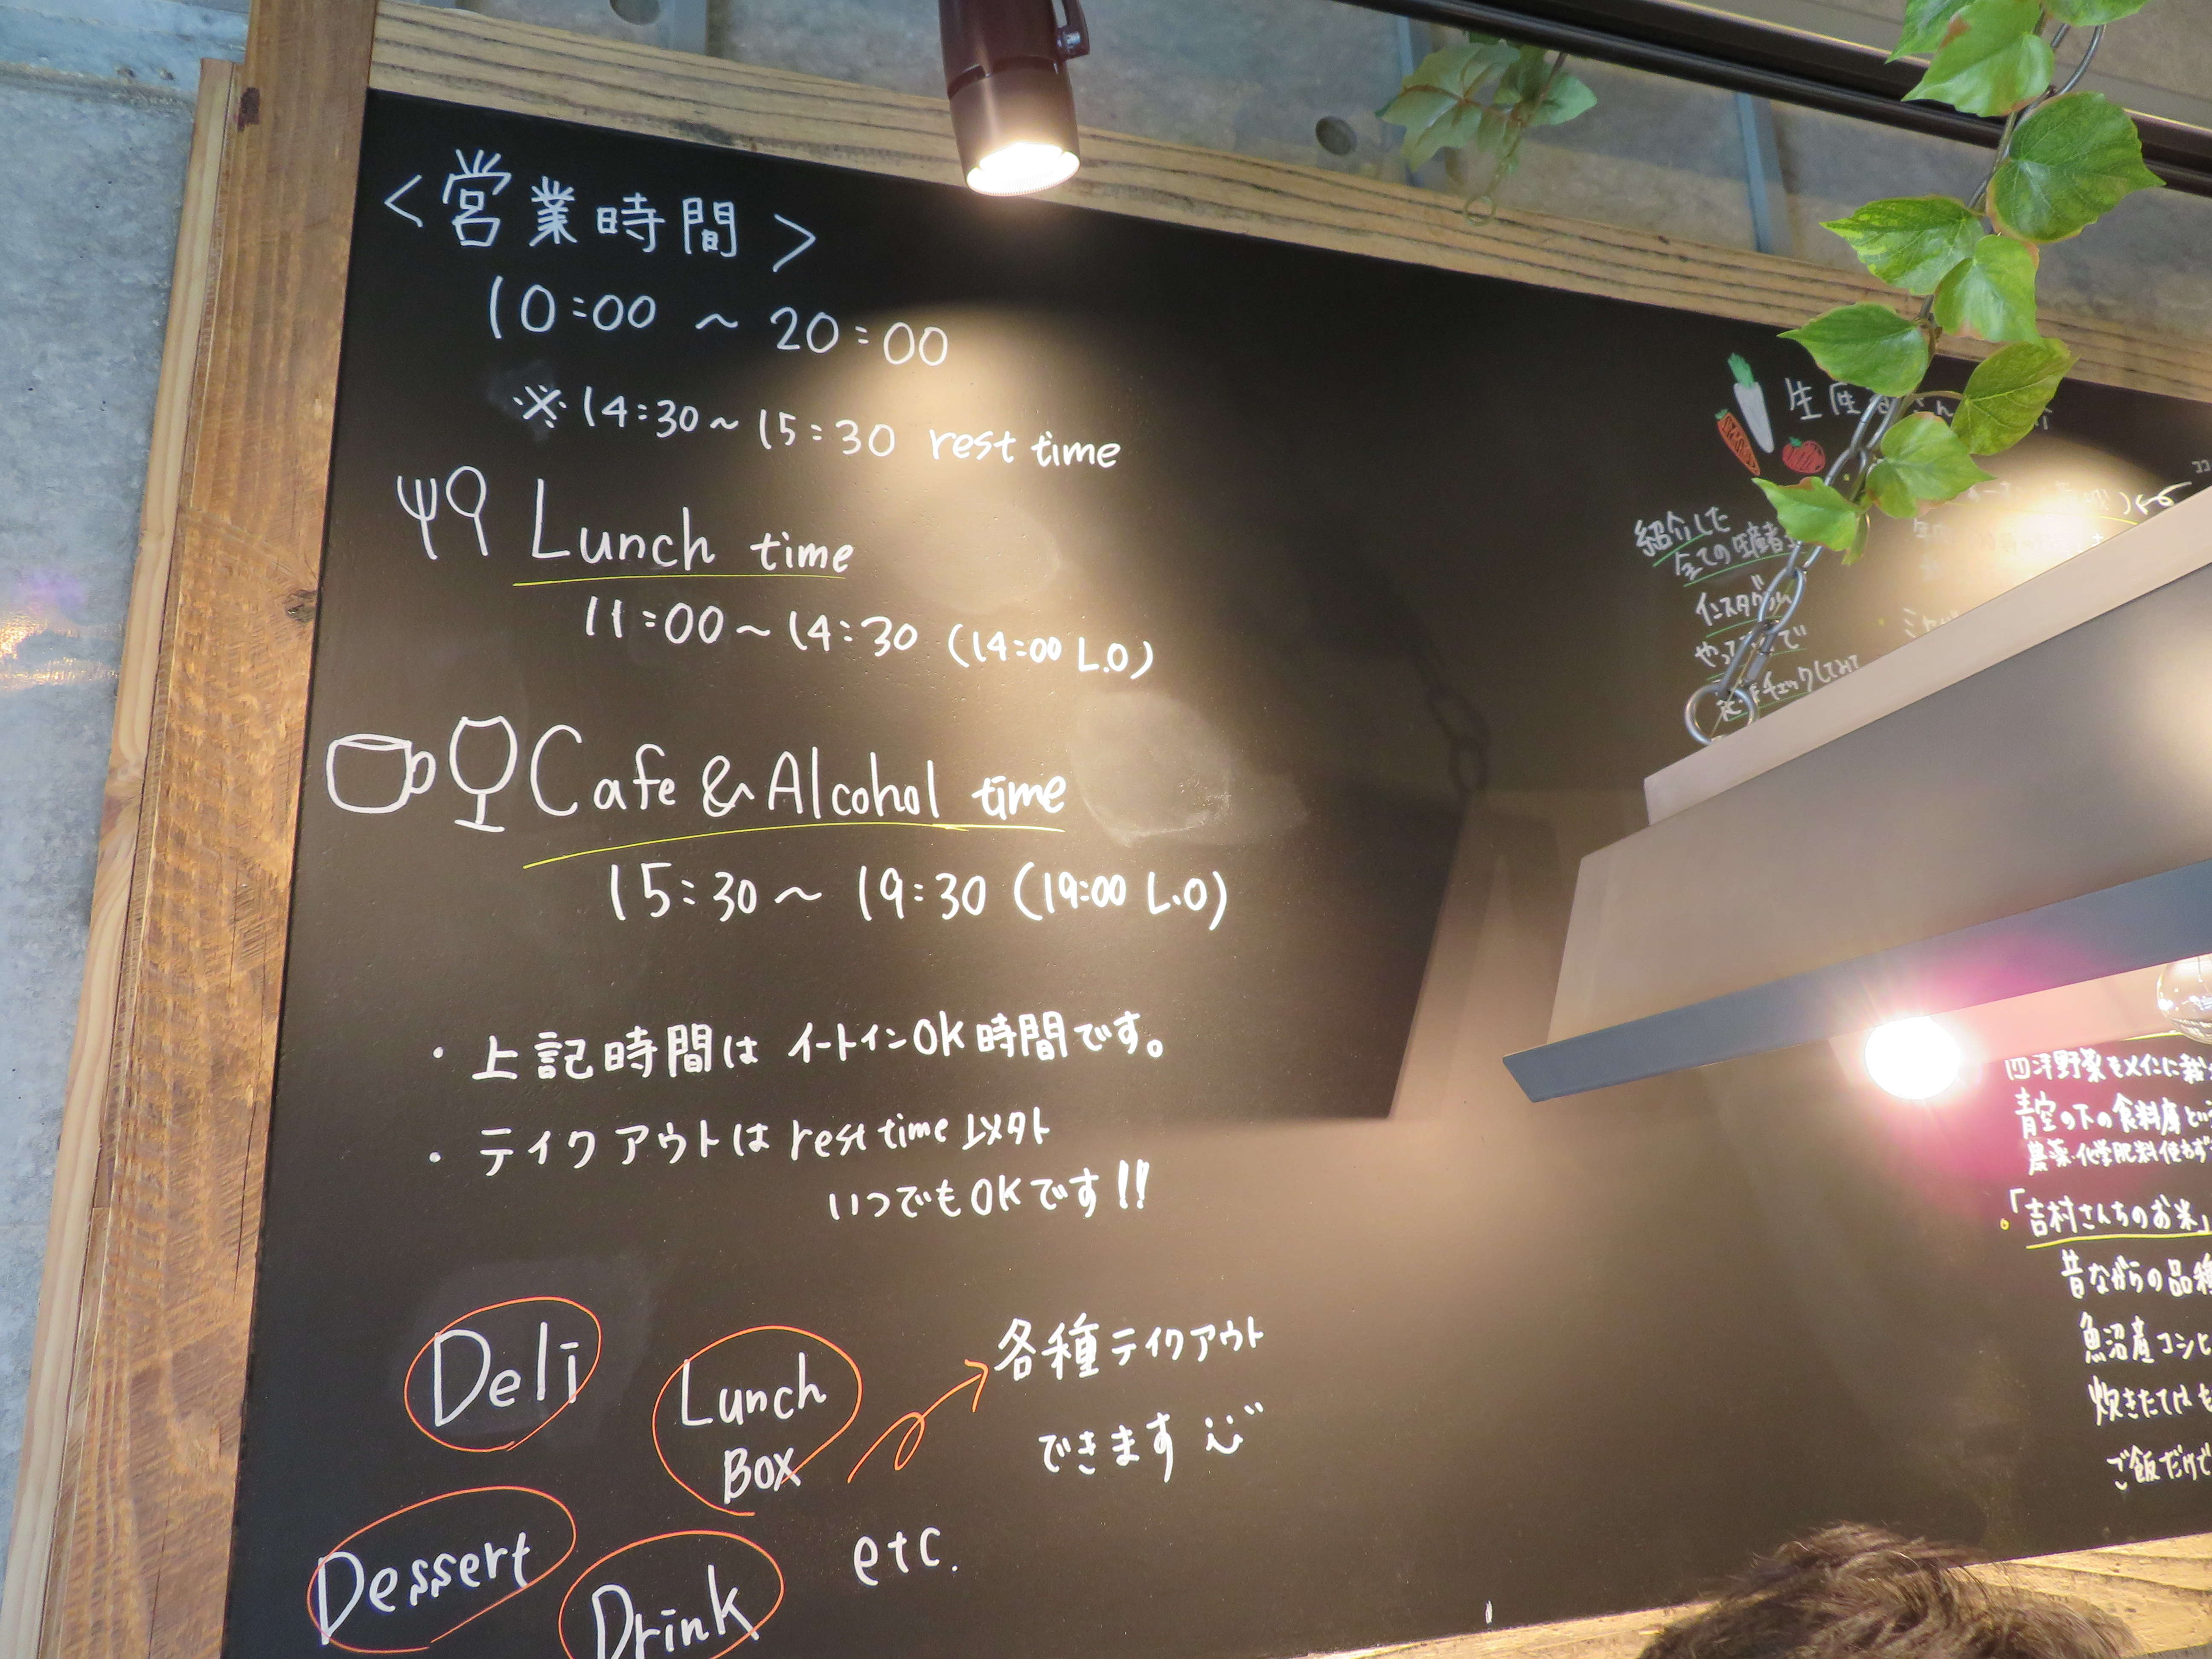 <営業時間>
10:00 ~ 20:00
※14:30~15:30 rest time
Lunch time
11:00~14:30 (14:00 L.O)
Cafe & Alcohol time
15:30~ 19:30 (19:00 L.O)
・上記時間は イートインOK時間です。
・テイクアウトは rest time 以外
いつでもOKです!!
Deli
Lunch
BOX
各種テイクアウト
できます
Dessert
Drink
etc.
紹介した
全ての生産者
チェックしてみて
野菜をメインに
青空の下の食料庫
農薬・化学肥料使わず
「吉村さんちのお米」
昔ながらの品種
魚沼産コシヒ
炊きたて
ご飯だけで